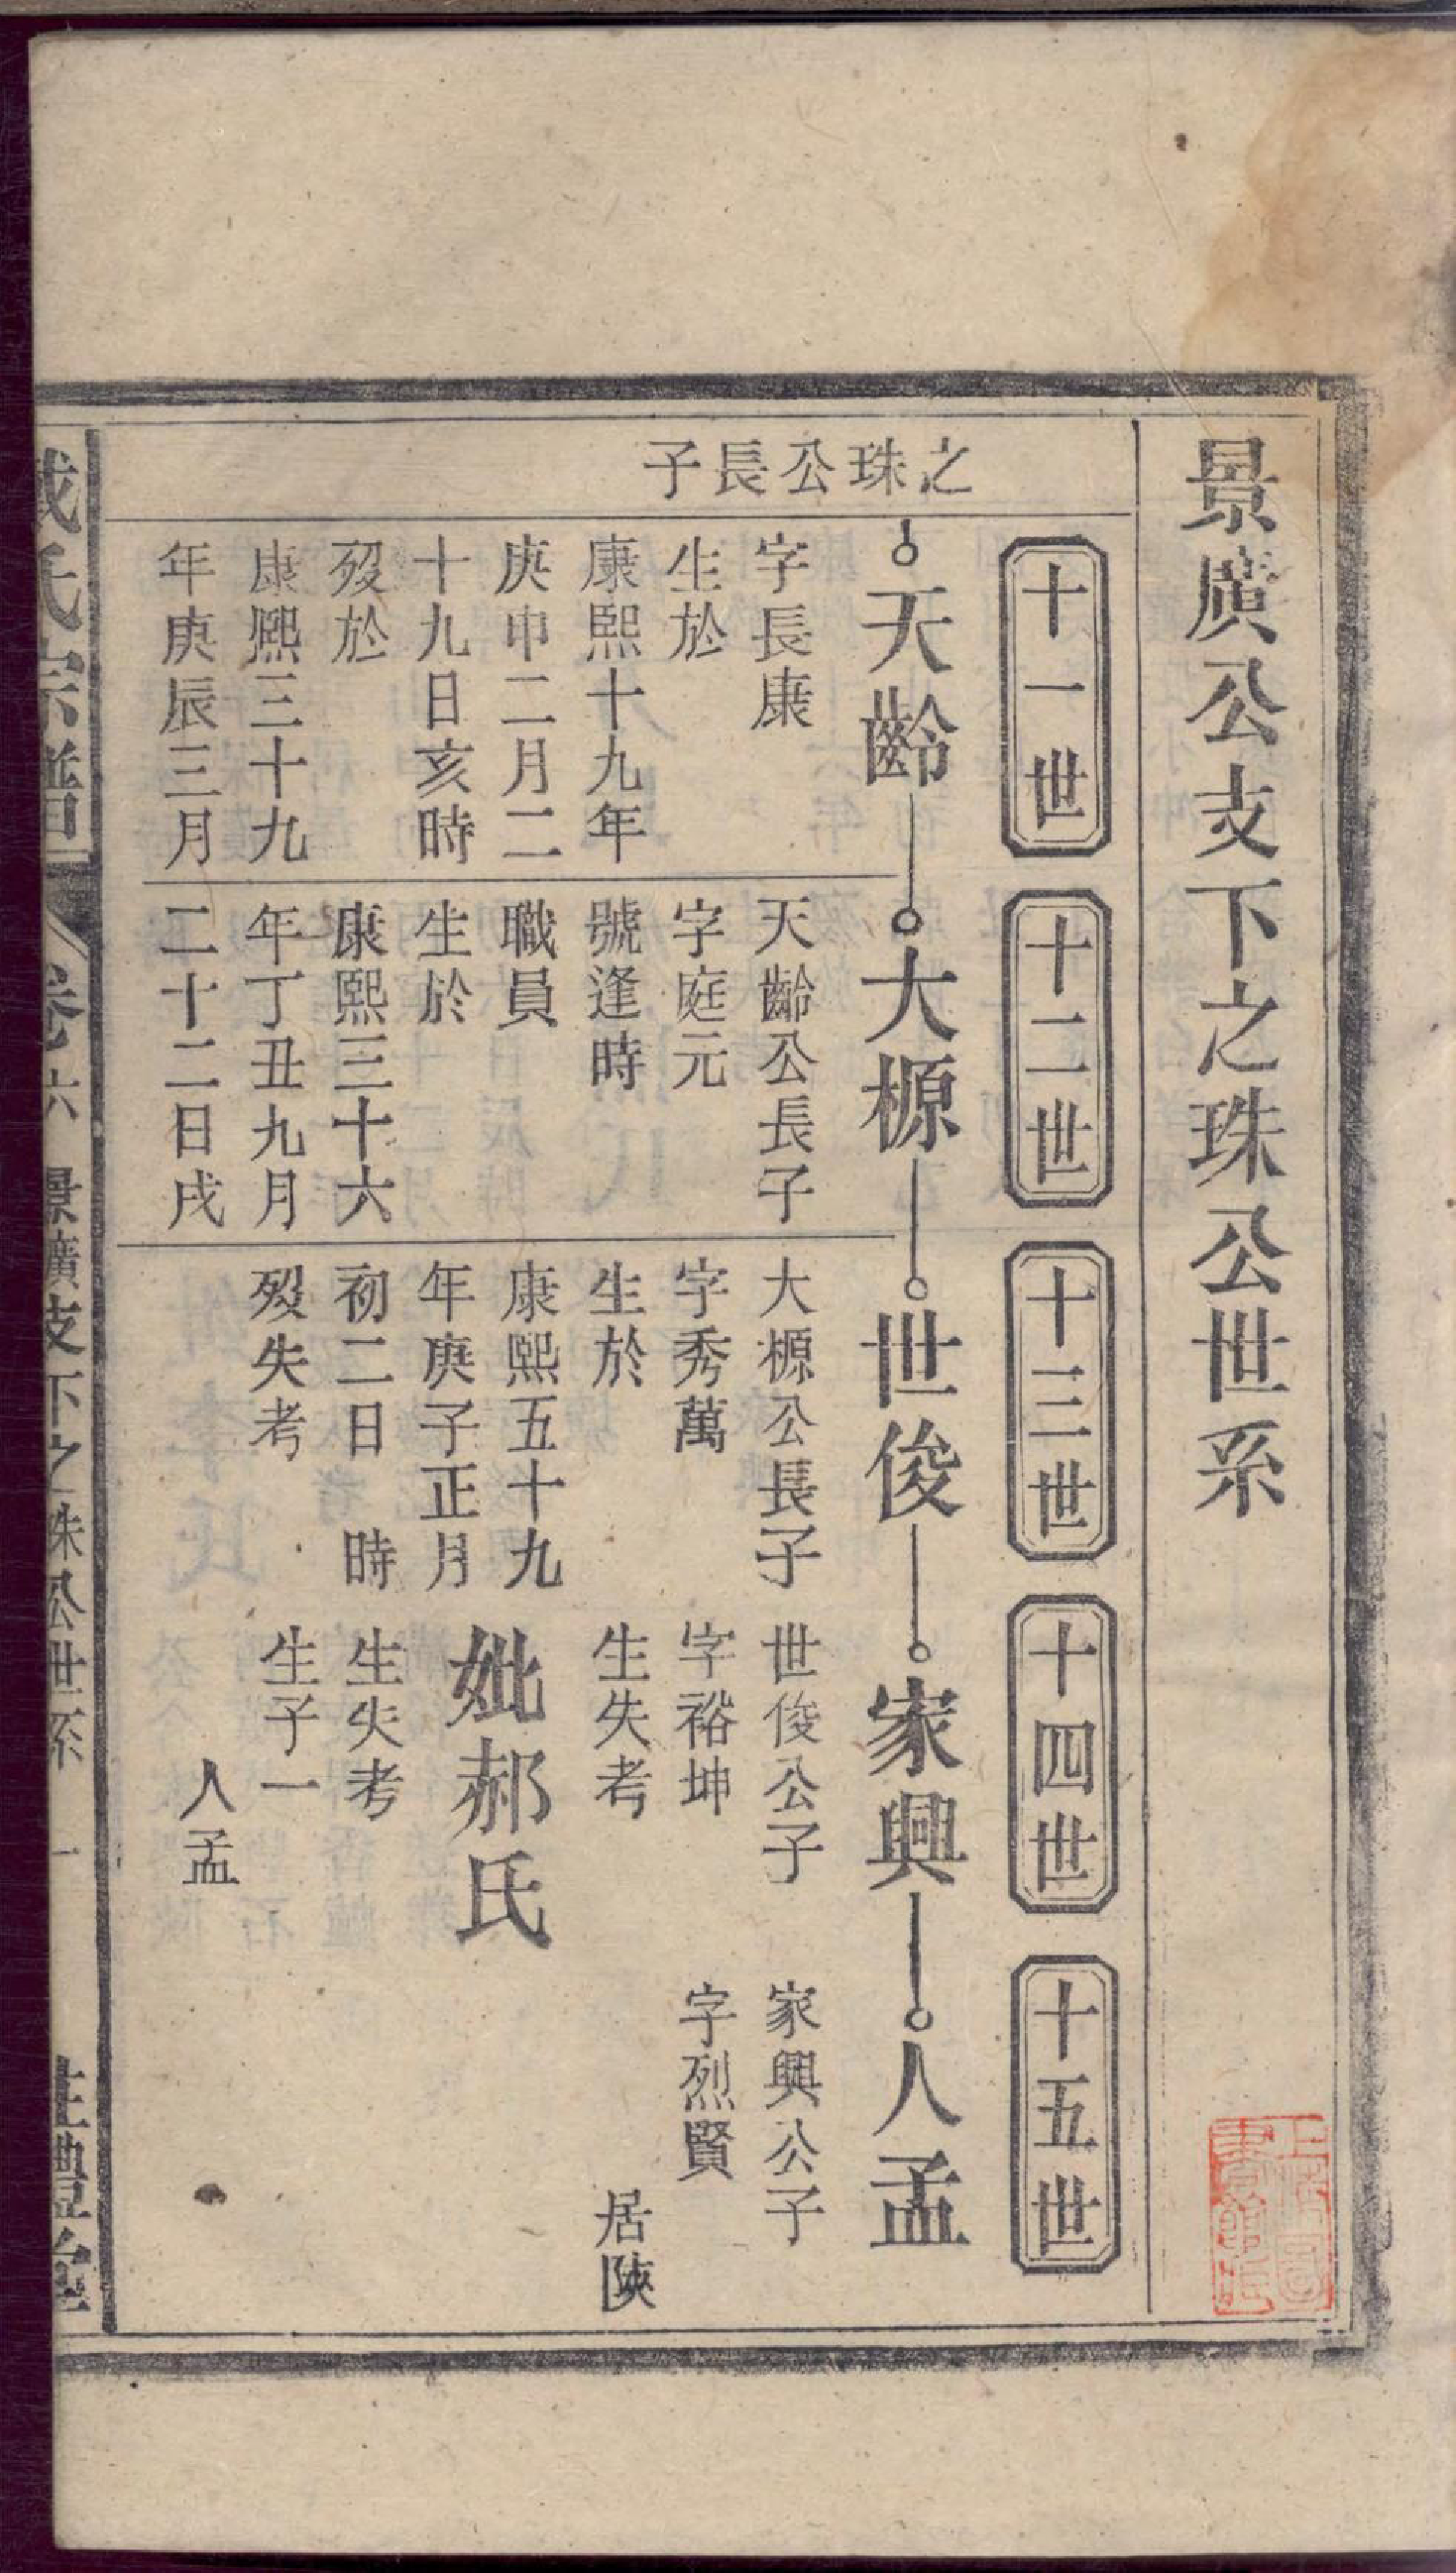 景廣公支下之珠公世系
十一世
十二世
十三世
十四世
十五世
之珠公長子
天齡
大榞
世俊
家興
人孟
字長康
生於
康熙十九年
庚申二月二
十九日亥時
歿於
康熙三十九
年庚辰三月
天齡公長子
字庭元
號逢時
職員
生於
康熙三十六
年丁丑九月
二十二日戌
大榞公長子
字秀萬
生於
康熙五十九
年庚子正月
初二日 時
歿失考
世俊公子
字裕坤
生失考
妣郝氏
生失考
生子一
人孟
家興公子
字烈賢
居陝
氏宗譜 卷六 景廣支下之珠公世系 一 禮堂